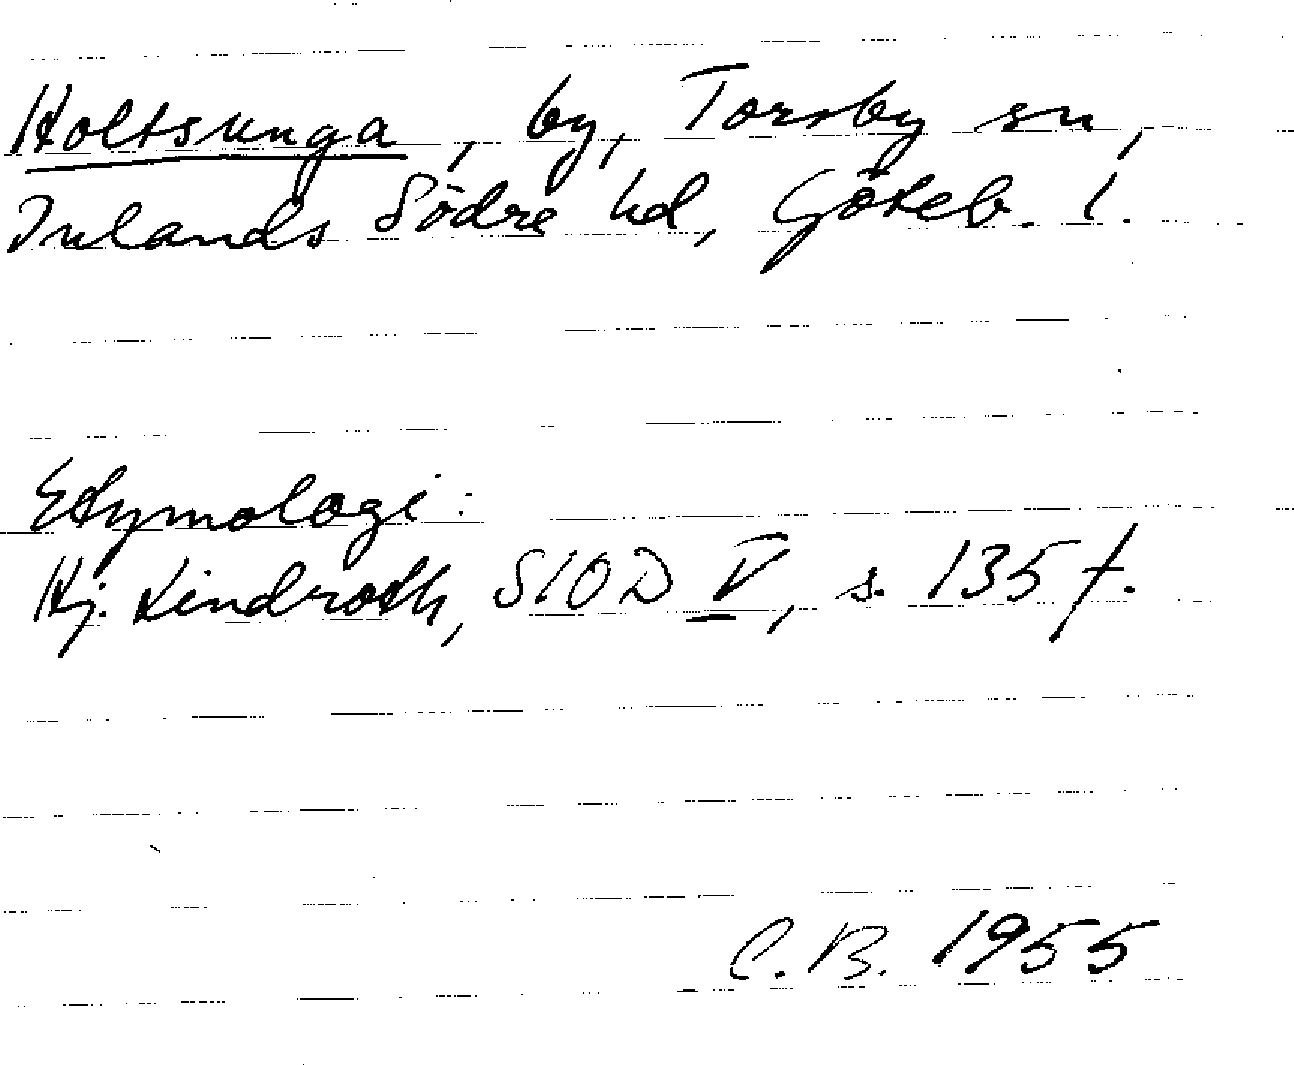 Holtsunga, by, Torsby sn,
Inlands Södre hd, Göteb. l.
Etymologi:
Hj. Lindroth, SIOD V, s. 135 f.
C.B. 1955